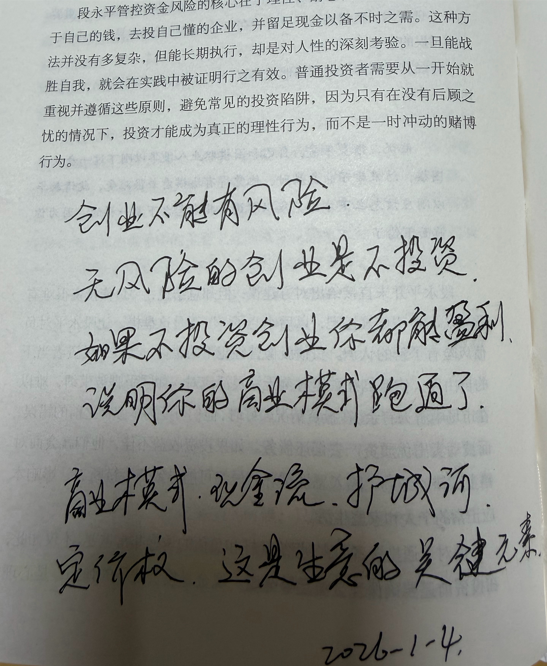 段永平管控资金风险的核心在于理性、
于自己的钱，去投自己懂的企业，并留足现金以备不时之需。这种方
法并没有多复杂，但能长期执行，却是对人性的深刻考验。一旦能战
胜自我，就会在实践中被证明行之有效。普通投资者需要从一开始就
重视并遵循这些原则，避免常见的投资陷阱，因为只有在没有后顾之
忧的情况下，投资才能成为真正的理性行为，而不是一时冲动的赌博
行为。
创业不能有风险
无风险的创业是不投资.
如果不投资创业你都能盈利.
说明你的商业模式跑通了.
商业模式.现金流.护城河.
定价权.这是生意的关键元素.
2026-1-4.